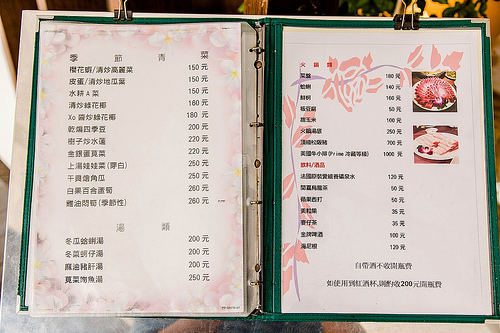 季 節 青 菜
櫻花蝦/清炒高麗菜 150 元
皮蛋/清炒地瓜葉 150 元
水耕A菜 150 元
清炒綠花椰 160 元
Xo 醬炒綠花椰 180 元
乾煸四季豆 200 元
樹子炒水蓮 220 元
金銀蛋莧菜 220 元
上湯娃娃菜(芽白) 250 元
干貝燴角瓜 250 元
白果百合蘆筍 260 元
雞油悶筍(季節性) 260 元
湯 類
冬瓜蛤蜊湯 200 元
冬菜蚵仔湯 200 元
麻油豬肝湯 200 元
莧菜吻魚湯 250 元
火 鍋 類
菜盤 180 元
蛤蜊 140 元
鮮蚵 160 元
板豆腐 50 元
甜玉米 100 元
火鍋湯底 250 元
頂級松阪豬 700 元
美國牛小排(Prime 冷藏等級) 1000 元
飲料/酒品
法國原裝愛維養礦泉水 120 元
開喜烏龍茶 50 元
蘋果西打 50 元
美粒果 35 元
麥仔茶 35 元
金牌啤酒 100 元
海尼根 120 元
自帶酒不收開瓶費
如使用到紅酒杯,則酌收200元開瓶費